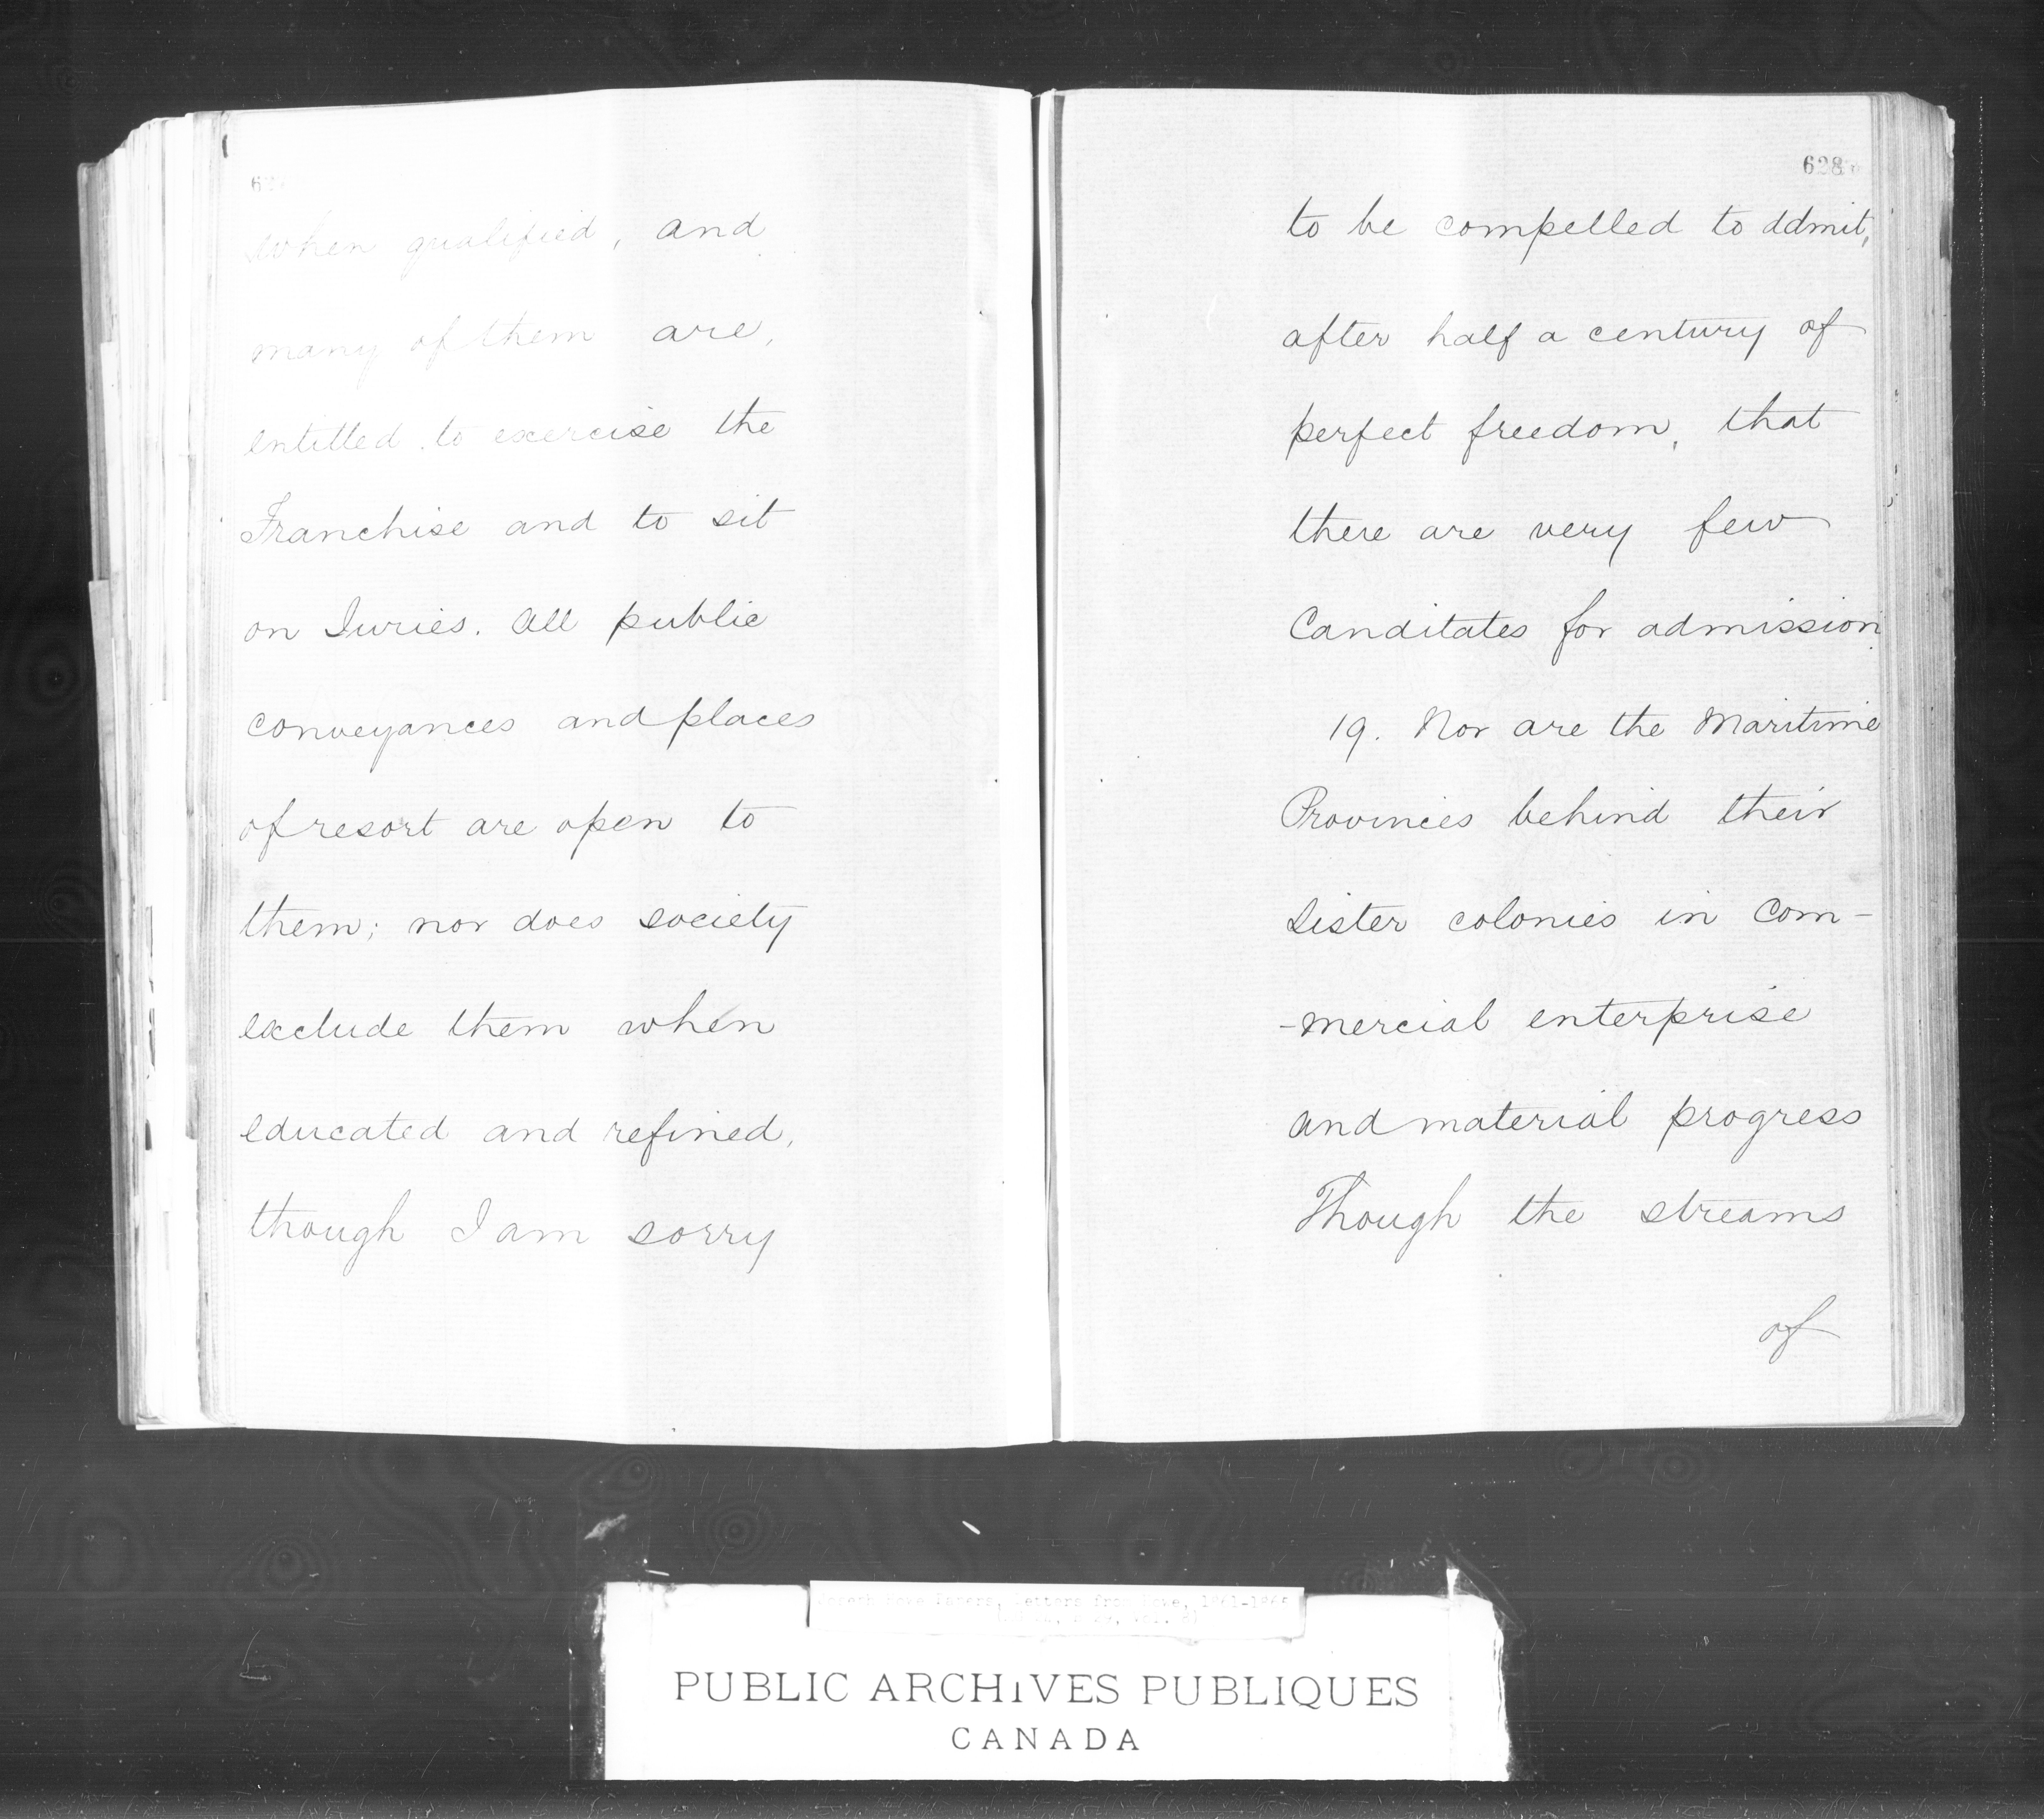 when qualified, and
many of them are,
entitled to exercise the
Franchise and to sit
on Juries. All public
conveyances and places
of resort are open to
them; nor does society
exclude them when
educated and refined,
though I am sorry
628
to be compelled to ddmit,
after half a century of
perfect freedom, that
there are very few
Canditates for admission
19. Nor are the Maritime
Provinces behind their
Sister colonies in Com-
-mercial enterprise
and material progress
Though the streams
of
Joseph Howe Papers, Letters from Howe, 1861-1865
PUBLIC ARCHIVES PUBLIQUES
CANADA